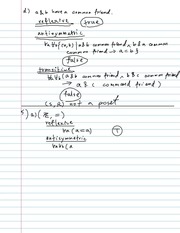 d) a & b have a common friend.
reflexive
true
antisymmetric
∀a∀b (a & b common friend ∧ b & a common
common friend → a = b }
false
transitive
a & b common friend ∧ b & c common
a & ( command friend )
false
(S, R) not a poset
a) ( =)
reflexive
∀a (a = a) T
antisymmetric
∀a∀b (a